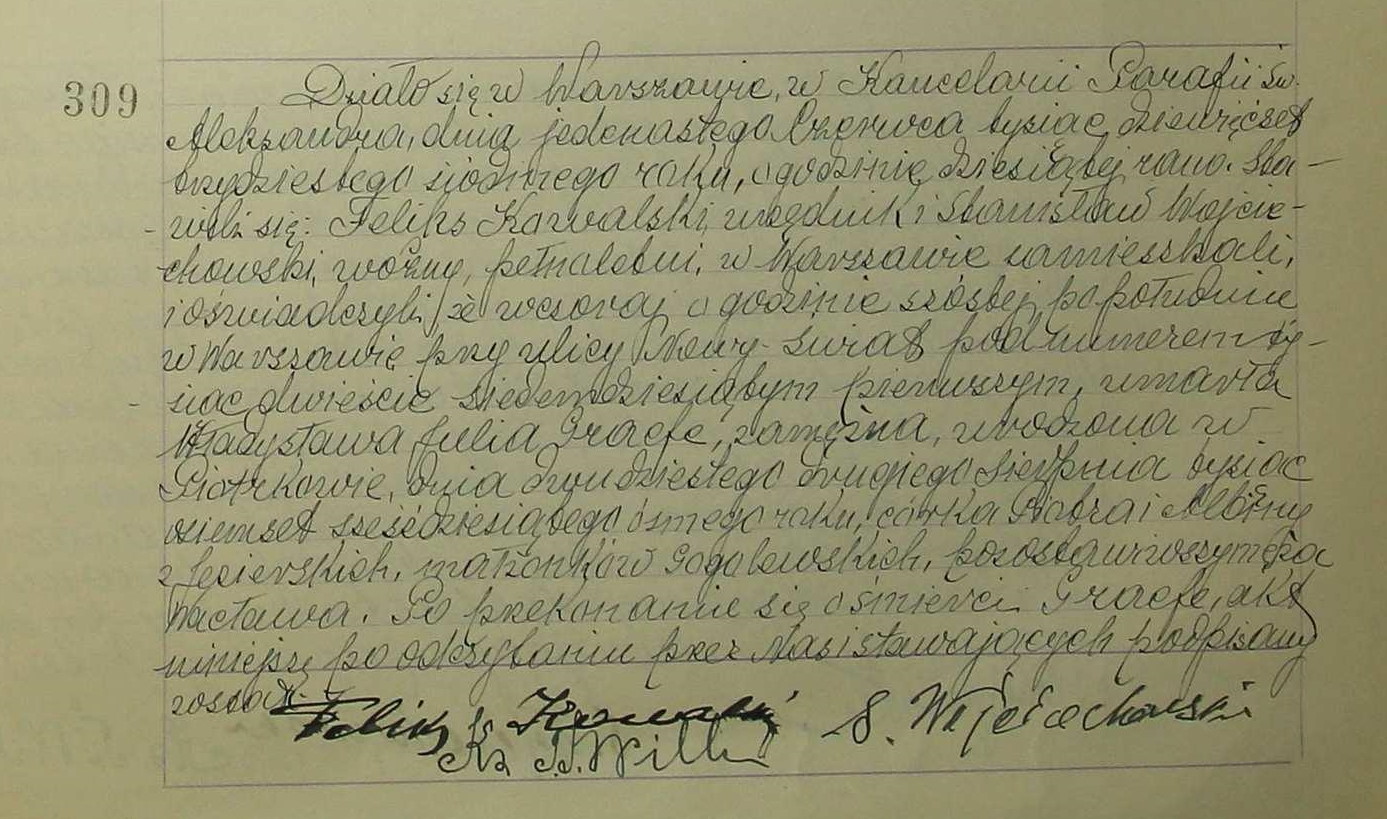 309
Działo się w Warszawie, w Kancelarii Parafii św.
Aleksandra, dnia jedenastego Czerwca tysiąc dziewięćset
trzydziestego siódmego roku, o godzinie dziesiątej rano. Sta-
wili się: Feliks Kowalski, urzędnik i Stanisław Wojcie-
chowski, woźny, pełnoletni, w Warszawie zamieszkali,
i oświadczyli, że wczoraj o godzinie szóstej po południu
w Warszawie przy ulicy Nowy-Świat pod numerem ty-
siąc dwieście siedemdziesiątym pierwszym, umarła
Władysława Julia Graefe, zamężna, urodzona w
Piotrkowie, dnia dwudziestego drugiego Sierpnia tysiąc
osiemset sześćdziesiątego ósmego roku, córka Piotra i Albiny
z małżonków Gogolewskich, pozostawiwszy męża
Wacława. Po przekonaniu się o śmierci Graefe, akt
niniejszy po odczytaniu przez Nas i stawających podpisany
został.
Feliks Kowalski S. Wojciechowski
Ks.